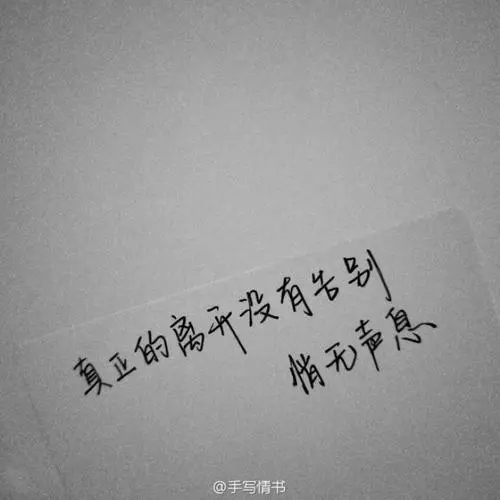 真正的离开没有告别
悄无声息
@手写情书